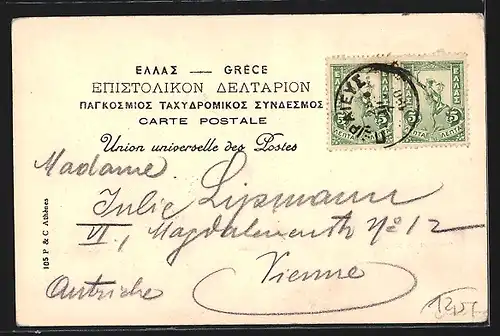 ΕΛΛΑΣ — GRÈCE
ΕΠΙΣΤΟΛΙΚΟΝ ΔΕΛΤΑΡΙΟΝ
ΠΑΓΚΟΣΜΙΟΣ ΤΑΧΥΔΡΟΜΙΚΟΣ ΣΥΝΔΕΣΜΟΣ
CARTE POSTALE
Union universelle des Postes
ΕΛΛΑΣ
5 5
ΛΕΠΤΑ
ΕΛΛΑΣ
5 5
ΛΕΠΤΑ
Madame
Julie Lipmann
VI, Magdalenenstr No 12
Vienne
Autriche
105 P & C Athènes